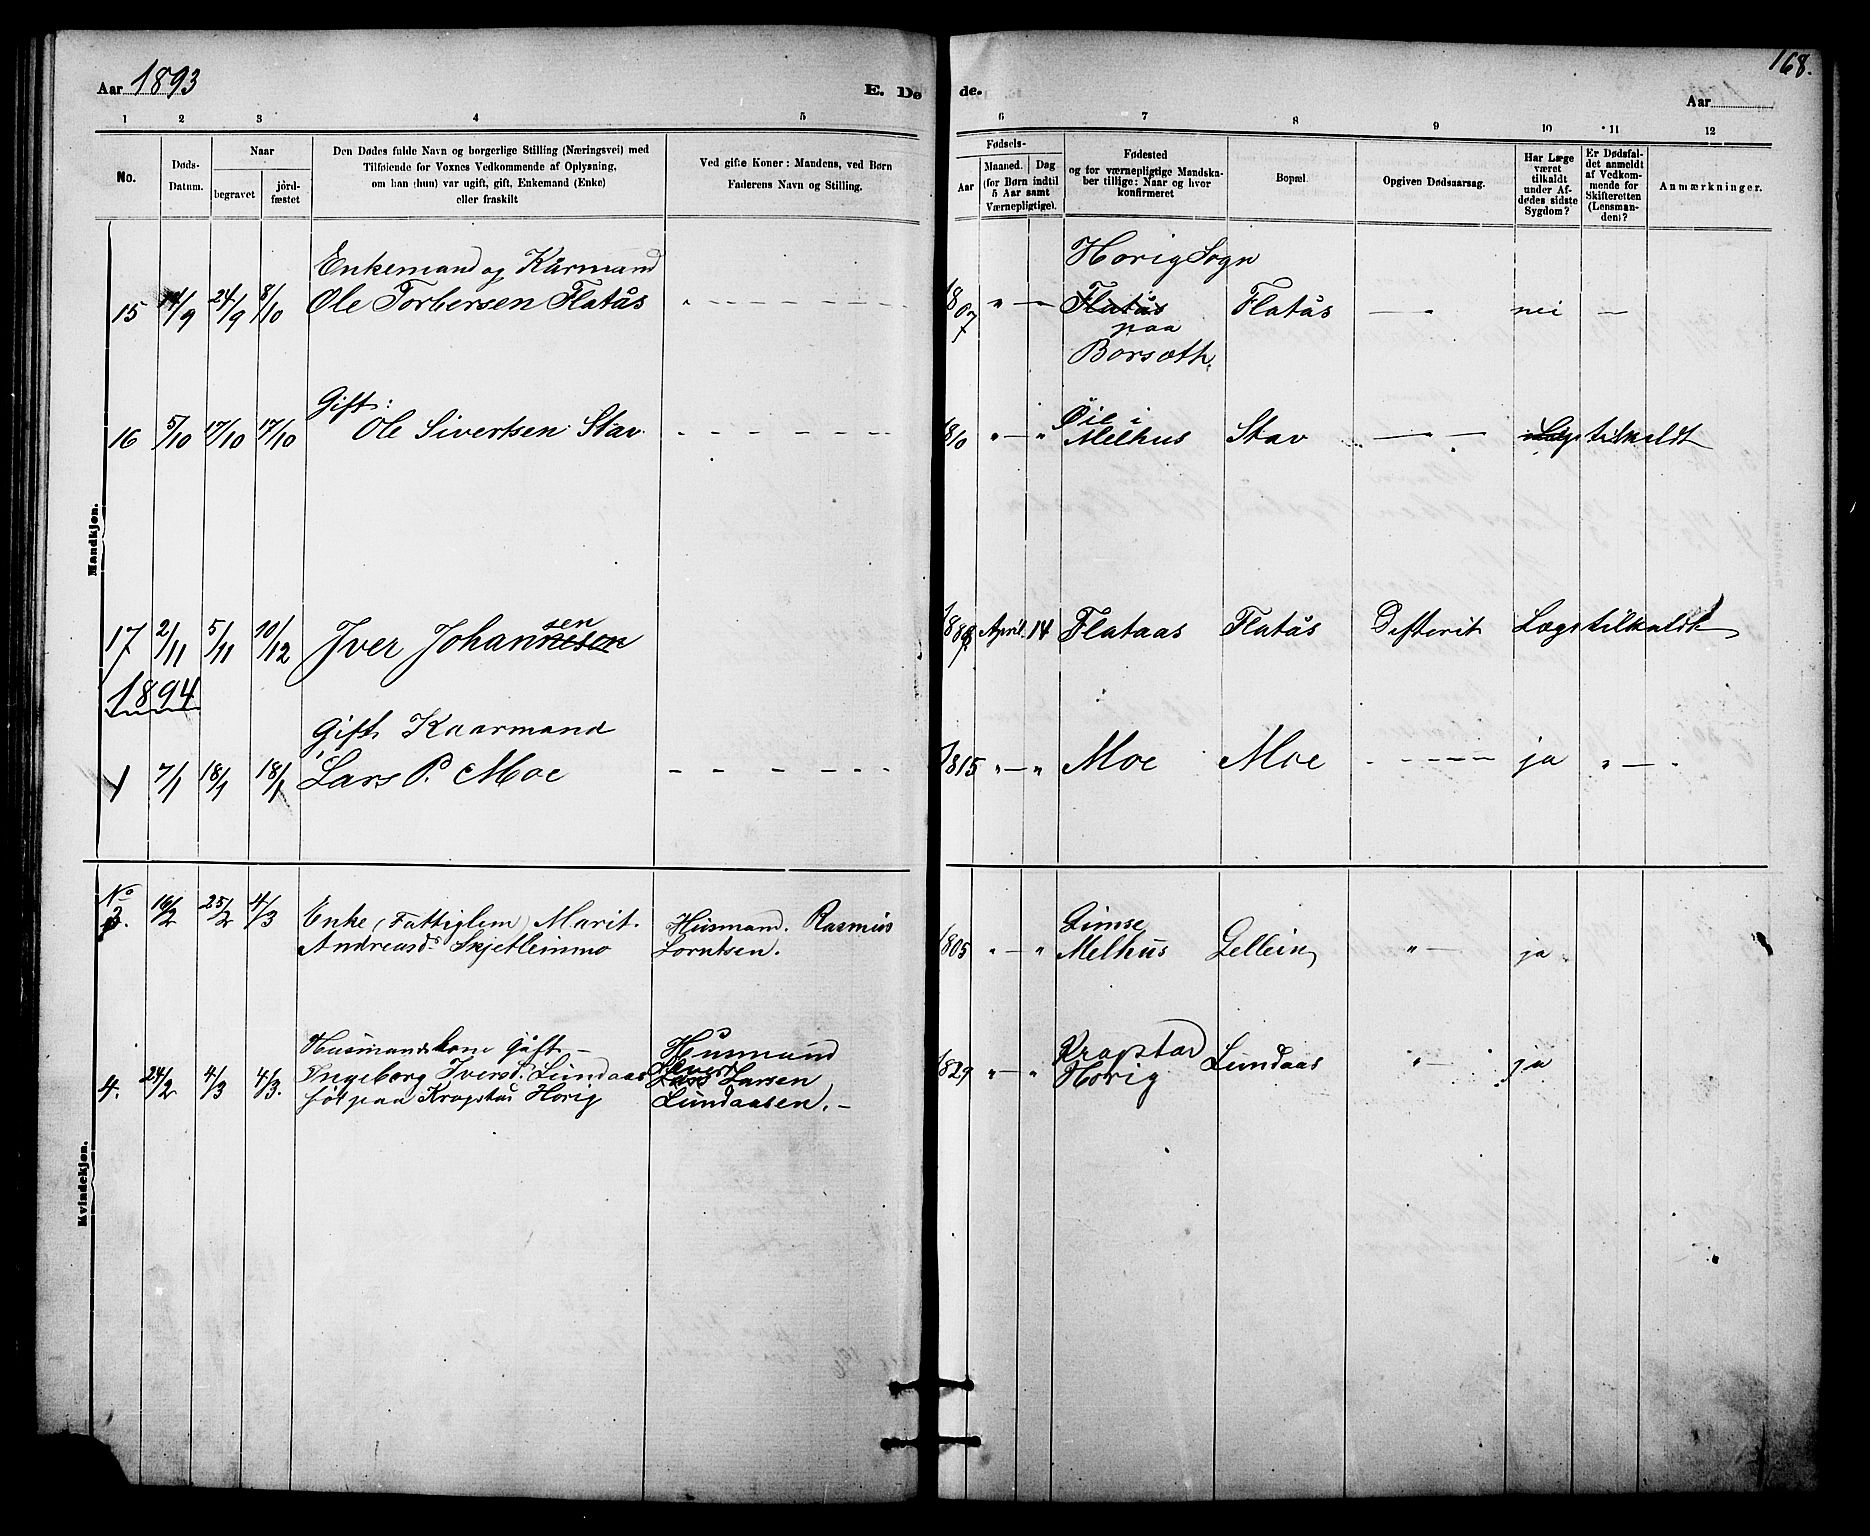 Aar 1893
E. Dø
de.
168.
Aar
1 2 3 4 5
6 7 8 9 10 11 12
No.
Døds-
Datum.
Naar
begravet
jord-
fæstet
Den Dødes fulde Navn og borgerlige Stilling (Næringsvei) med
Tilføiende for Voxnes Vedkommende af Oplysning,
om han (hun) var ugift, gift, Enkemand (Enke)
eller fraskilt
Ved gifte Koner: Mandens, ved Børn
Faderens Navn og Stilling.
Fødsels-
Aar
Maaned.
Dag
(for Børn indtil
5 Aar samt
Værnepligtige).
Fødested
og for værnepligtige Mandska-
ber tillige: Naar og hvor
konfirmeret
Bopæl.
Opgiven Dødsaarsag.
Har Læge
været
tilkaldt
under Af-
dødes sidste
Sygdom?
Er Dødsfal-
det anmeldt
af Vedkom-
mende for
Skifteretten
(Lensman-
den)?
Anmærkninger.
Mandkjøn.
Enkemand og Kårmand
Horig Sogn
15 14/9 24/9 8/10 Ole Torbersen Flatås " - - - - - 1807 " — Flatås Flatås — " nei —
paa
Borsæth.
Gift:
Øie i
16 5/10 17/10 17/10 Ole Sivertsen Stav - - - - - 1810 " — " Melhus Stav — — tilkaldt
sen
17 2/11 5/11 10/12 Iver Johannesen April 14 Flataas Flatås Difterit Læge tilkaldt
1894
Gift Kaarmand
1 7/1 18/1 18/1 Lars P. Moe - - - - - 1815 " — " Moe Moe - - - - ja " — "
Kvindekjøn.
No Gimse
3. 16/2 25/2 4/3 Enke (Fattiglem) Marit. Husmand. Rasmus 1805 " — " Melhus Gellein " — ja
Andreasd. Skjetleinmo Lorntsen.
Husmandskone Gift — Husmand Kragstad
4. 24/2 4/3 4/3. Ingeborg Iversd. Lundaas Sivert Lars Larsen 1829 " — " Horig Lundaas " — ja
føt paa Kragstad Horig Lundaasen. —